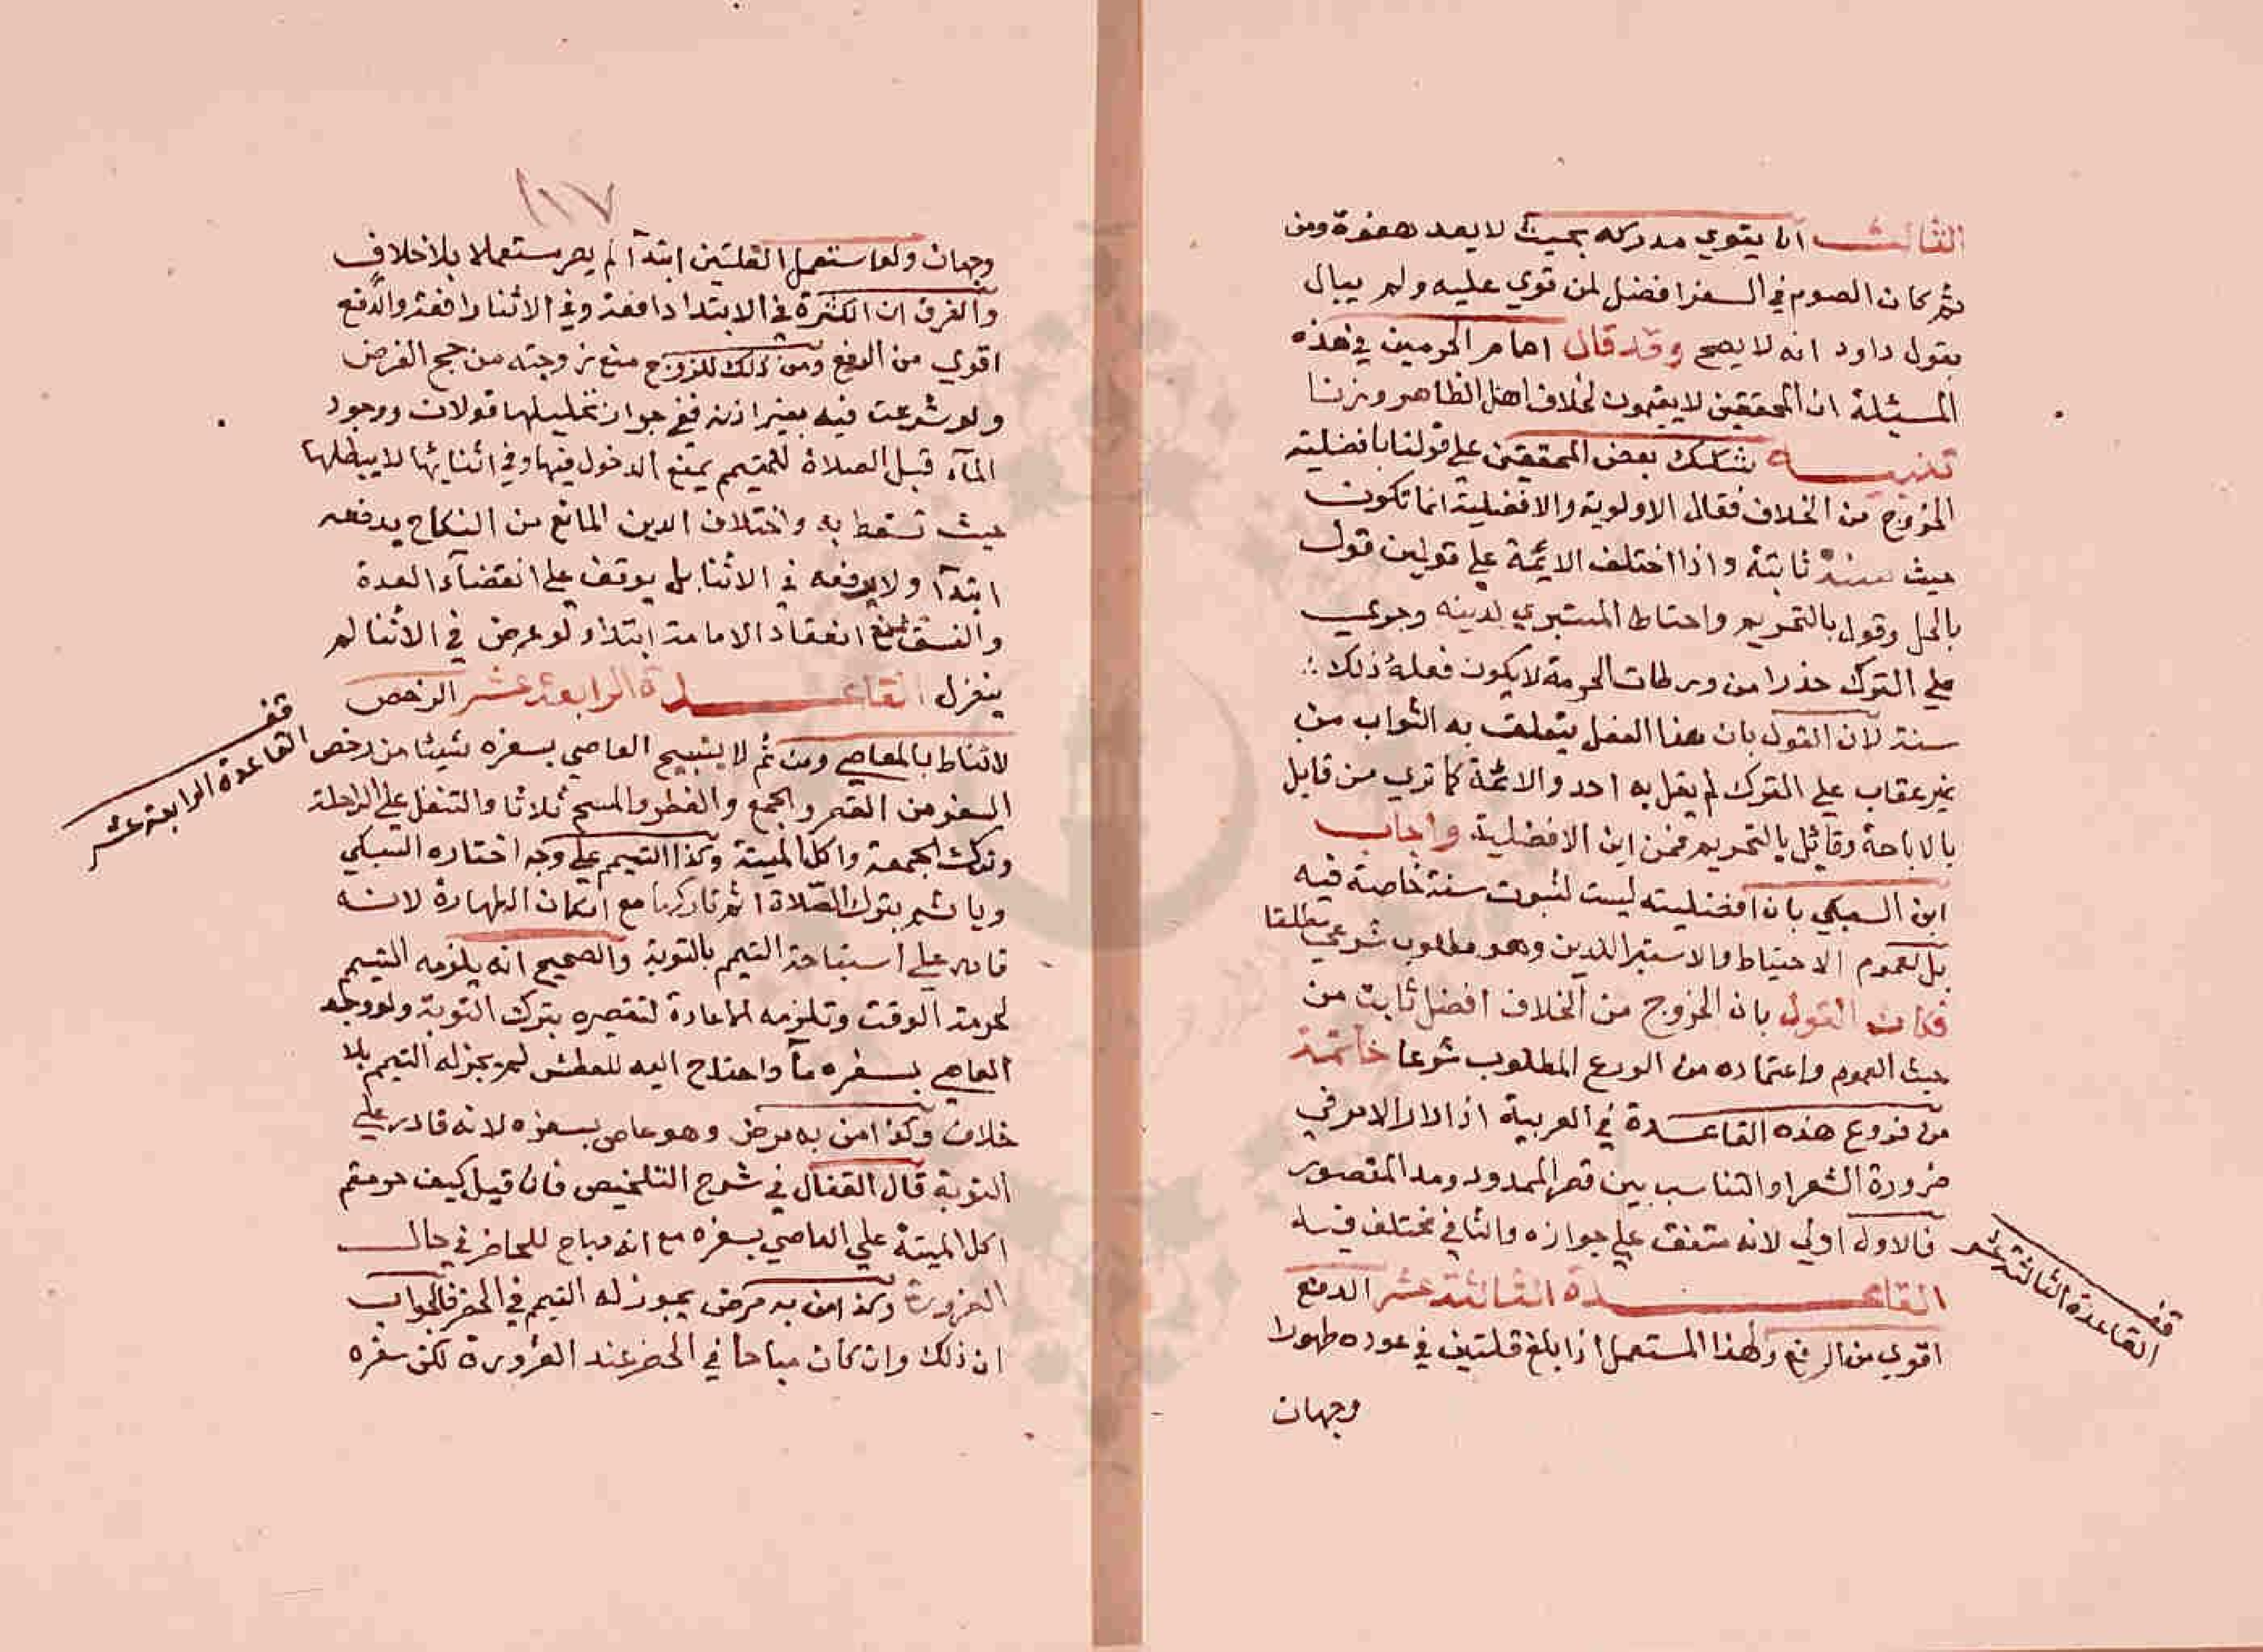 الثالث ان يقوي مدركه بحيث لا يعد هفوة ومن
ثم كان الصوم في السفر افضل لمن قوي عليه ولم يبال
بقول داود انه لا يصح وقد قال امام الحرمين في هذه
المسئلة ان المحققين لا يقيمون لخلاف اهل الظاهر وزنا
تنبيه شكك بعض المحققين علي قولنا بافضلية
الخروج من الخلاف فقال الاولوية والافضلية انما تكون
حيث سنة ثابتة واذا اختلف الائمة علي قولين قول
بالحل وقول بالتحريم واحتاط المستبري لدينه وجري
علي الترك حذرا من ورطات الحرمة لا يكون فعله ذلك
سنة لان القول بان هذا الفعل يتعلق به الثواب من
غير عقاب علي الترك لم يقل به احد والائمة كما تري من قايل
بالاباحة وقائل بالتحريم فمن اين الافضلية واجاب
ابن السبكي بان افضليته ليست لثبوت سنة خاصة فيه
بل لعموم الاحتياط والاستبرا للدين وهو مطلوب شرعي مطلقا
فكان القول بان الخروج من الخلاف افضل ثابت من
حيث العموم واعتماده من الورع المطلوب شرعا خاتمة
من فروع هذه القاعدة في العربية اذا دار الامر في
ضرورة الشعر او التناسب بين قصر الممدود ومد المقصور
فالاول اولي لانه متفق علي جوازه والثاني مختلف فيه
القاعدة الثالثة عشر الدفع
اقوي من الرفع ولهذا المستعمل اذا بلغ قلتين في عوده طهورا
وجهان
قف
القاعدة الثالثة عشر
١١٧
وجهان ولو استعمل القلتين ابتدآ لم يصر مستعملا بلا خلاف
والفرق ان الكثرة في الابتدا دافعة وفي الاثنا رافعة والدفع
اقوي من الرفع ومن ذلك للزوج منع زوجته من حج الفرض
ولو شرعت فيه بغير اذنه ففي جواز تحليلها قولان ووجود
المآء قبل الصلاة للمتيمم يمنع الدخول فيها وفي اثنائها لا يبطلها
حيث تسقط به واختلاف الدين المانع من النكاح يدفعه
ابتدآ ولا يرفعه في الاثنا بل يوقف علي انقضآء العدة
والفسق يمنع انعقاد الامامة ابتدا ولو عرض في الاثنا لم
ينعزل القاعدة الرابعة عشر الرخص
لا تناط بالمعاصي ومن ثم لا يستبيح العاصي بسفره شيئا من رخص
السفر من القصر والجمع والفطر والمسح ثلاثا والتنفل علي الراحلة
وترك الجمعة واكل الميتة وكذا التيمم علي وجه اختاره السبكي
وياثم بترك الصلاة اثم تاركها مع امكان الطهارة لانه
قادر علي استباحة التيمم بالتوبة والصحيح انه يلزمه التيمم
لحرمة الوقت وتلزمه الاعادة لتقصيره بترك التوبة ولو وجد
العاصي بسفره مآ واحتاج اليه للعطش لم يجز له التيمم بلا
خلاف وكذا من به مرض وهو عاص بسفره لانه قادر علي
التوبة قال القفال في شرح التلخيص فان قيل كيف حرمتم
اكل الميتة علي العاصي بسفره مع انه مباح للحاضر في حال
الضرورة وكذا من به مرض يجوز له التيمم في الحضر فالجواب
ان ذلك وان كان مباحا في الحضر عند الضرورة لكن سفره
قف
القاعدة الرابعة عشر